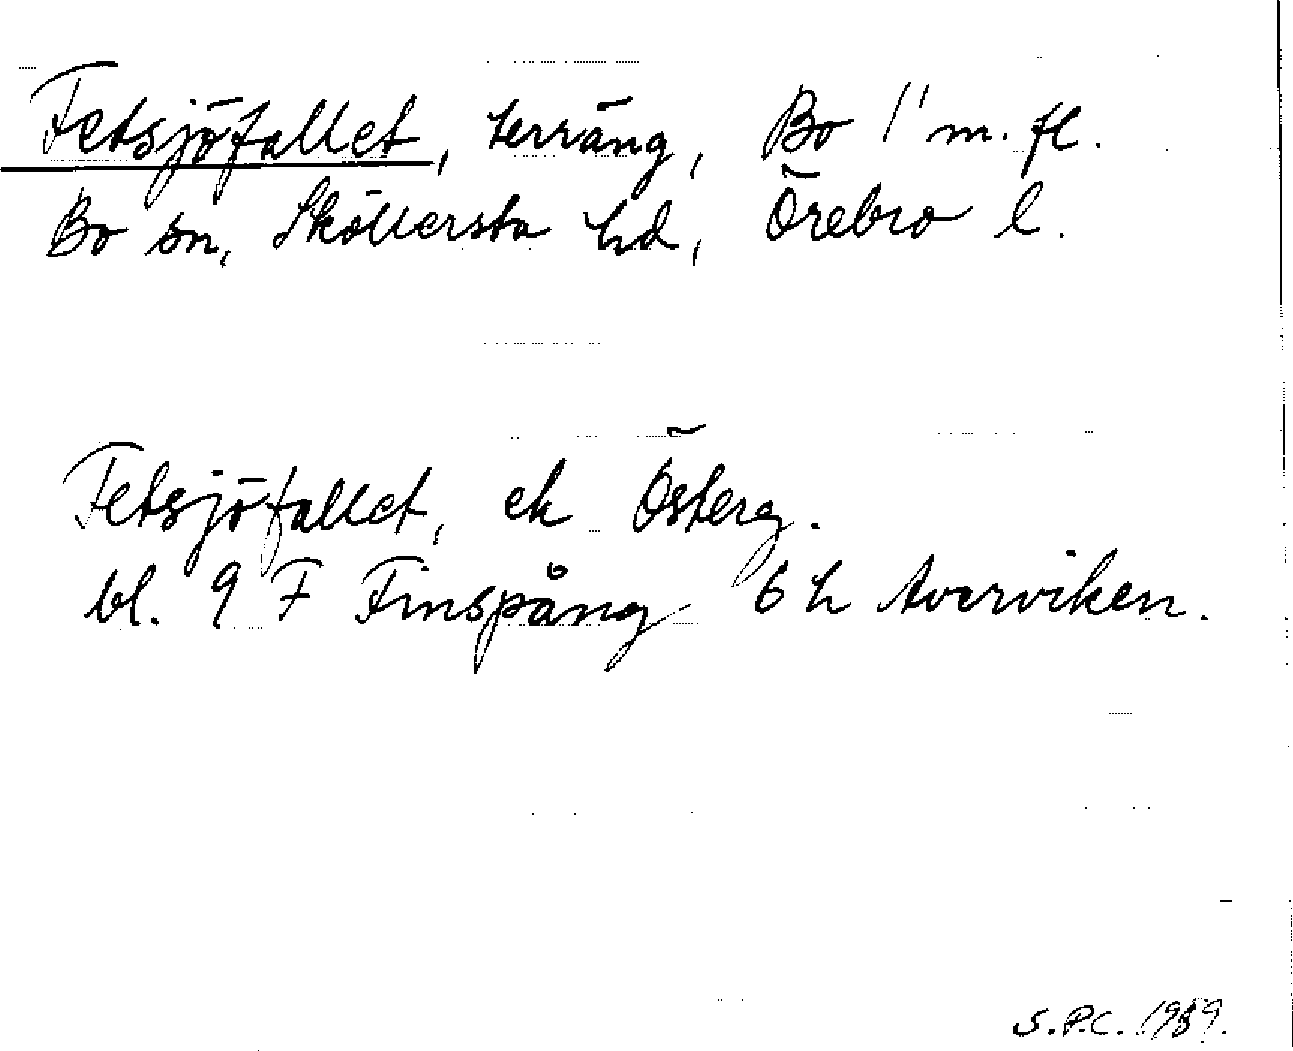 Fetsjöfallet, terräng, Bo 1¹ m. fl.
Bo sn, Sköllersta hd, Örebro l.
Fetsjöfallet, ek Österg.
bl. 9 F Finspång 6 h Averviken.
S.P.C. 1989.